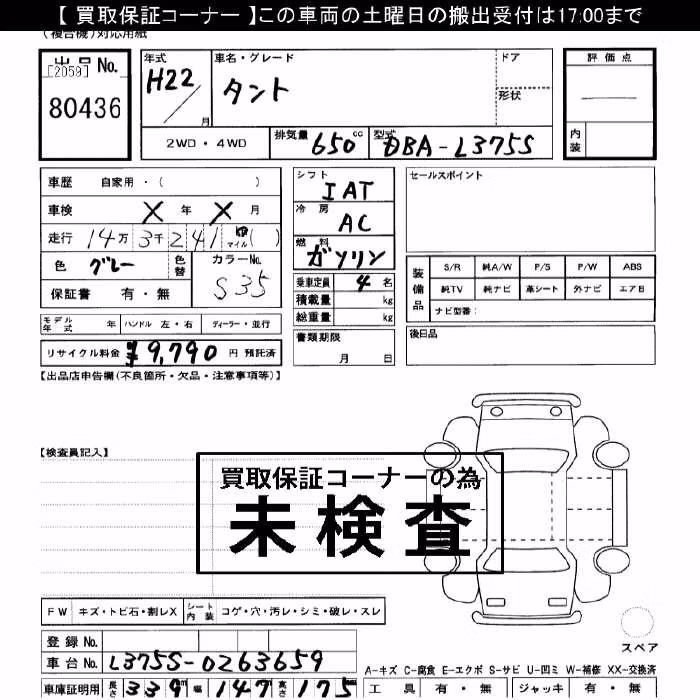 【 買取保証コーナー 】この車両の土曜日の搬出受付は17:00まで
(複合機)対応用紙
出品 No.
[2059]
80436
年式
H22
月
車名・グレード
タント
ドア
形状
評価点
内装
2WD・4WD
排気量 650 cc
型式 DBA-L375S
車歴 自家用・( )
車検 X 年 X 月
走行 14万 3千 2 4 1 マイル ( )
色 グレー
色替
カラーNo.
S35
保証書 有・無
シフト
IAT
冷房
AC
燃料
ガソリン
乗車定員 4 名
積載量 kg
総重量 kg
書類期限
月 日
セールスポイント
装備品
S/R 純A/W P/S P/W ABS
純TV 純ナビ 革シート 外ナビ エアB
ナビ型番:
後日品
モデル年式 年
ハンドル 左・右
ディーラー・並行
リサイクル料金 ¥9,790 円 預託済
【出品店申告欄(不良箇所・欠品・注意事項等)】
【検査員記入】
買取保証コーナーの為
未検査
FW キズ・トビ石・割レX
シート内装 コゲ・穴・汚レ・シミ・破レ・スレ
登録 No.
車台 No. L375S-0263659
スペア
A-キズ C-腐食 E-エクボ S-サビ U-凹ミ W-補修 XX-交換済
車庫証明用 長さ 339 幅 147 高さ 175
工具 有・無 ジャッキ 有・無